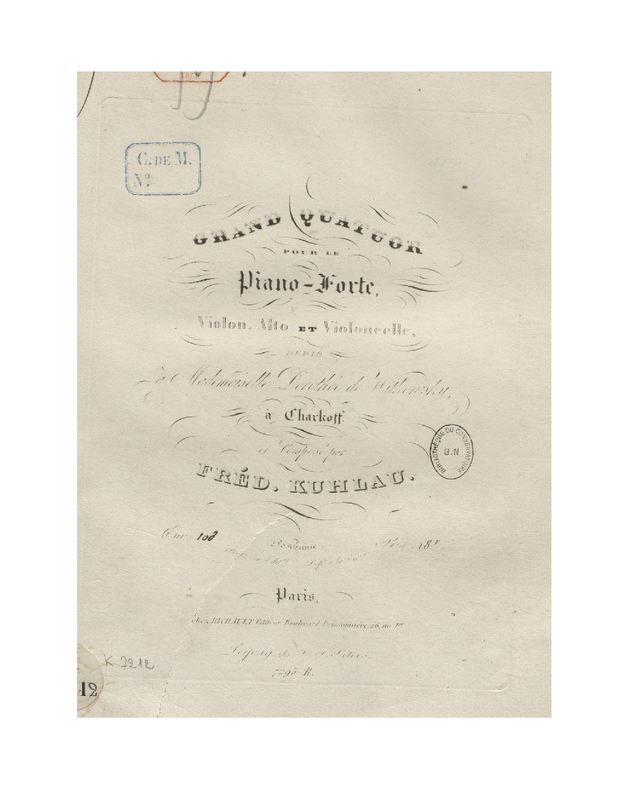 C. DE M.
Nº
GRAND QUATUOR
POUR LE
Piano-Forte,
Violon, Alto ET Violoncelle,
DEDIÉ
à Mademoiselle Dorothée de Withowsky,
à Charkoff
et Composé par
FRÉD. KUHLAU.
BIBLIOTHÈQUE DU CONSERVATOIRE
B.N
Œuv. 108 Prix 18
Paris,
chez RICHAULT Editeur Boulevard Poissonnière 26, au 1er
Leipzig
K. 7212
12